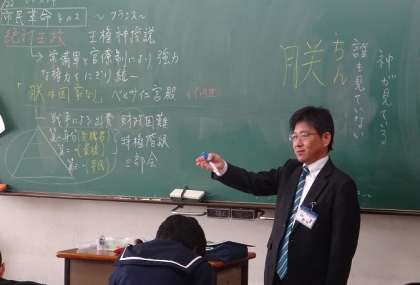 市民革命 その2 ～フランス～
絶対王政 王権神授説
→常備軍と官僚制により強力
な権力をにぎり統一
「朕は国家なり」ベルサイユ宮殿
戦争による出費 財政困難
第一身分(聖職者) 特権階級
第二〃(貴族) 三部会
第三〃(平民)
朕
ちん
誰も見ていない
神が見てる